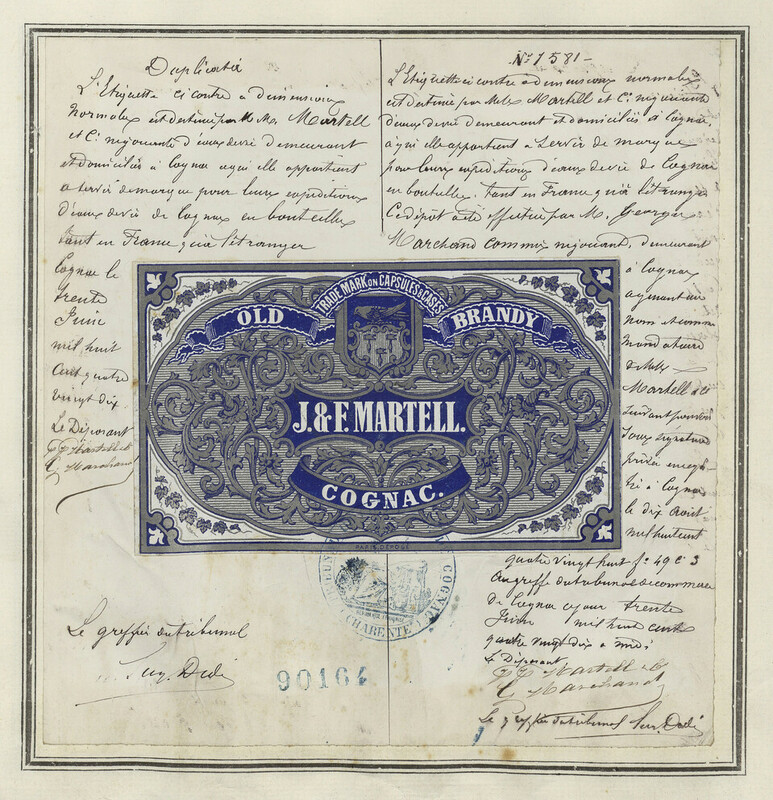 Duplicata
L'Etiquette ci contre a dimensions
normales est destinée par M.M. Martell
et Cie négociants d'eaux de vie demeurant
et domiciliés à Cognac à qui elle appartient
a servir de marque pour leurs expéditions
d'eaux de vie de Cognac en bouteilles
tant en France qu'à l'étranger
Cognac le
trente
Juin
mil huit
cent quatre
vingt dix.
Le Déposant
Martell & C
Marchand
Le greffier du tribunal
No 1581 -
L'Etiquette ci contre a dimensions normales
est destinée par Martell et Cie négociants
d'eaux de vie demeurant et domiciliés à Cognac,
à qui elle appartient à servir de marque
pour leurs expéditions d'eaux de vie de Cognac
en bouteilles, tant en France qu'à l'étranger
Ce dépôt a été effectué par M. Georges
Marchand commis négociant, demeurant
à Cognac
agissant au
nom et comme
mandataire
de
Martell & Cie
suivant pouvoir
sous signature
privée enregis-
tré à Cognac
le dix Août
mil huit cent
quatre vingt huit fo 49 c 3
Au greffe du tribunal de commerce
de Cognac ce jour trente
Juin mil huit cent
quatre vingt dix a midi
Le Déposant
Martell & C
Marchand
Le greffier du tribunal
TRADE MARK ON CAPSULES & CASES
OLD BRANDY
J. & F. MARTELL.
COGNAC.
PARIS, DÉPOSÉ
COGNAC
CHARENTE
90164